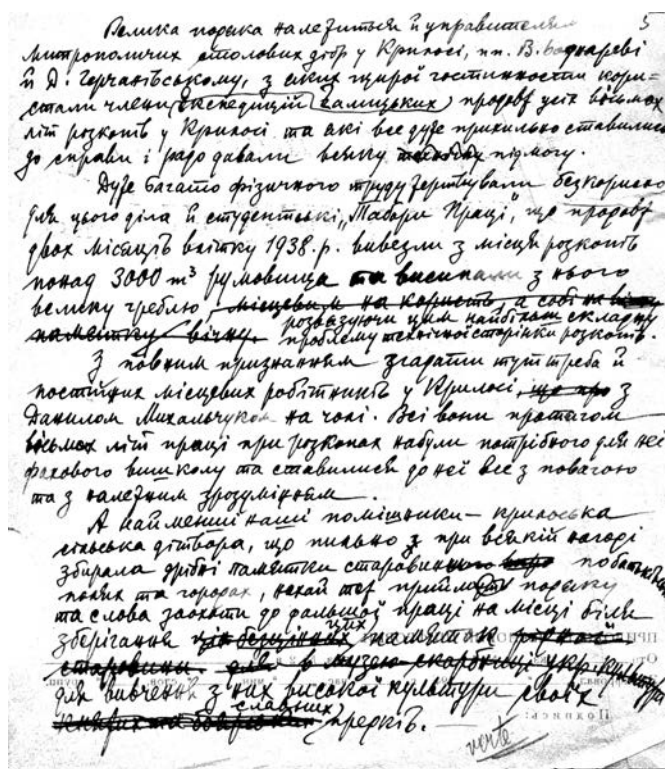 5
Велика подяка належиться й управителям
митрополичих столових дібр у Крилосі, пп. В. Боднареві
й Д. Горчанівському, з яких щирої гостинности кори-
стали члени експедицій (галицьких) продовж усіх вісьмох
літ розкопів у Крилосі та які все дуже прихильно ставились
до справи і радо давали всяку підмогу.
Дуже багато фізичного труду жертвували безкорисно
для цього діла й студентські „Табори Праці", що продовж
двох місяців влітку 1938. р. вивезли з місця розкопів
понад 3000 m³ румовища та висипали з нього
велику греблю, місцевим на користь, а собі на
памятку вічну. розвязуючи цим найбільш складну
проблему технічної сторінки розкопів.
З повним признанням згадати тут треба й
постійних місцевих робітників у Крилосі, що про з
Данилом Михальчуком на чолі. Всі вони протягом
вісьмох літ праці при розкопах набули потрібного для неї
фахового вишколу та ставилися до неї все з повагою
та з належним зрозумінням.
А найменші наші помішники — крилоська
сільська дітвора, що пильно при всякій нагоді
збирала дрібні памятки старовинного побатьківських
полях та городах, нехай теж приймуть подяку
та слова заохоти до дальшої праці на місці біля
зберігання цих безцінних памяток рідної
старовини для в музею скарбниці укр. культури
для вивчення з них високої культури своїх
княжих та боярських славних предків.
verte
Подпись: